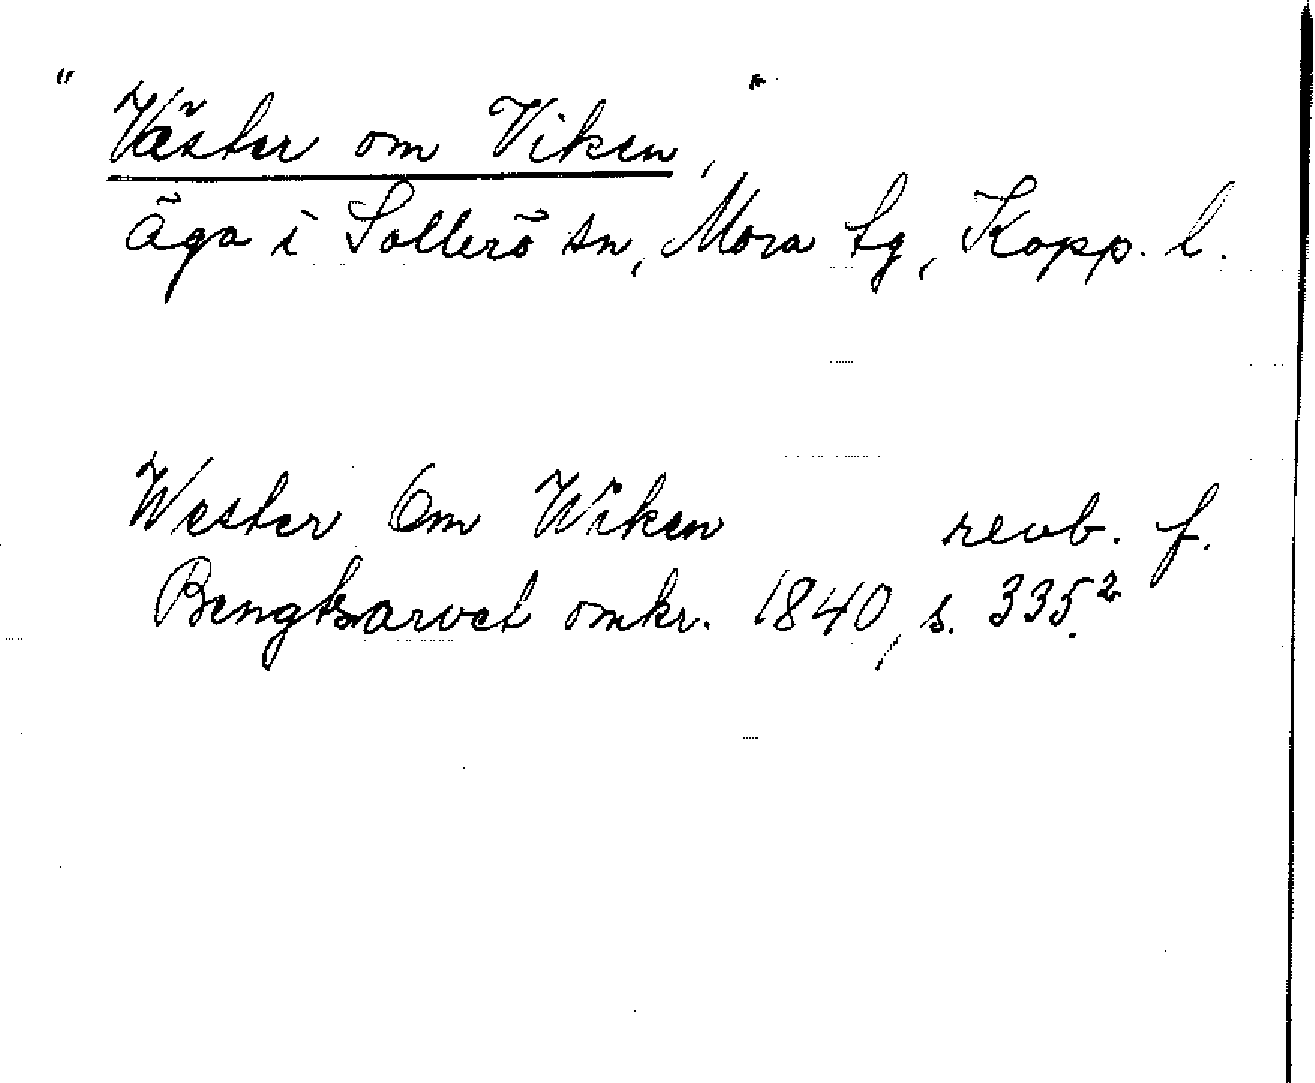 "Väster om Viken,"
äga i Sollerö sn, Mora tg, Kopp. l.
Wester Om Wiken revb. f.
Bengtsarvet omkr. 1840, s. 335².